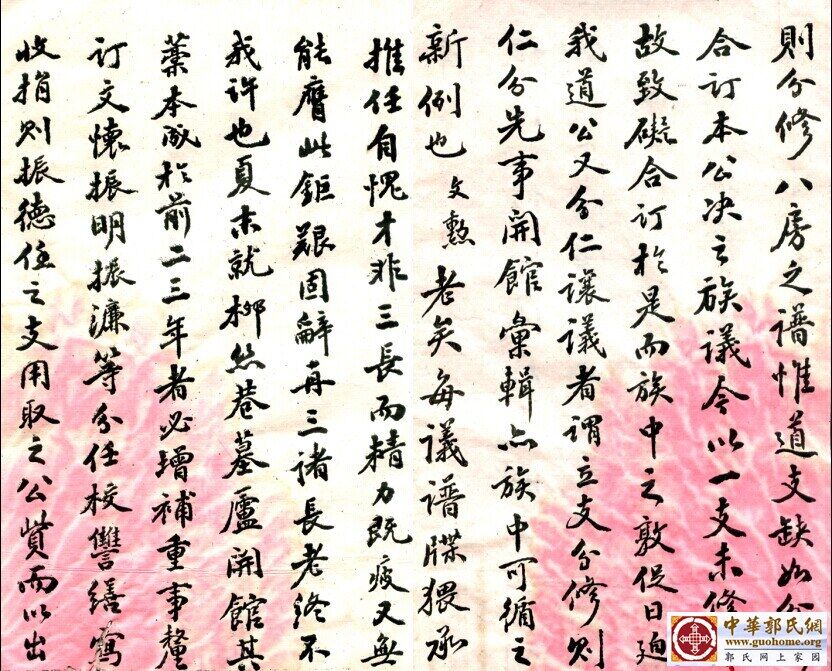 則分修八房之譜惟道支缺如分
合訂本公决之族議今以一支未修
故致礙合訂於是而族中之敦促日殆
我道公又分仁讓議者謂立支分修則
仁分先事開館彙輯亦族中可循之
新例也文勲老矣每議譜牒猥承
推任自愧才非三長而精力既疲又無
能膺此鉅艱固辭再三諸長老終不
我許也夏末就柳絲巷墓廬開館其
藁本成於前二三年者必增補重事釐
訂文懷振明振濂等分任校讐繕寫
收捐則振德任之支用取之公貲而以出
中華郭氏網
www.guohome.org
郭氏网上家园